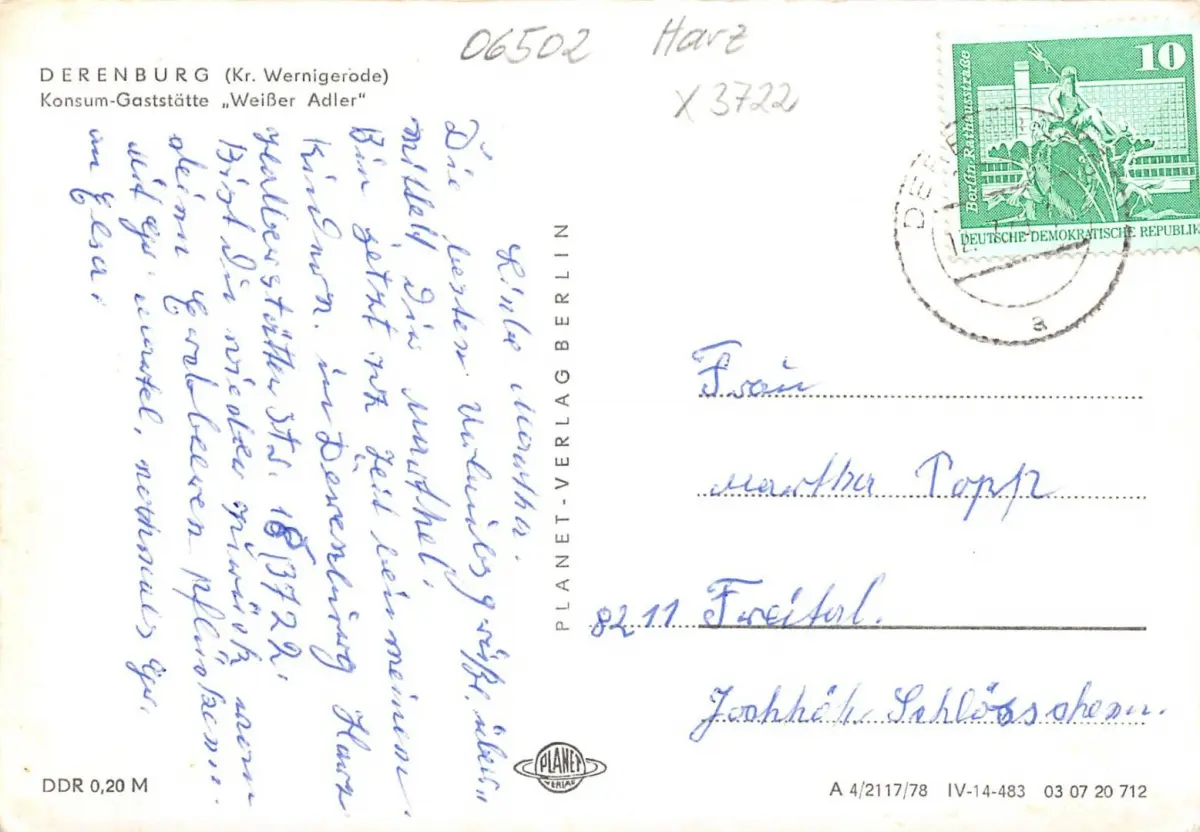 06502 Harz
X 3722
DERENBURG (Kr. Wernigerode)
Konsum-Gaststätte „Weißer Adler"
Liebe Martha.
Die besten Urlaubsgrüße über„
mittelt Dir Marthel.
Bin jetzt zur Zeit bei meinen
Kindern. in Derenburg Harz
Halberstätter Str. 18 3722.
Bist Du wieder zurück vom
deinn Erdbeeren pflücken.
Mit Gr. Martel, nochmals Gr.
an Elsa.
PLANET-VERLAG BERLIN
10
Berlin Rathausstraße
DEUTSCHE DEMOKRATISCHE REPUBLIK
a
Frau
Martha Popp
8211 Freital.
Jochhöh Schlösschen.
PLANET
VERLAG
DDR 0,20 M
A 4/2117/78 IV-14-483 03 07 20 712